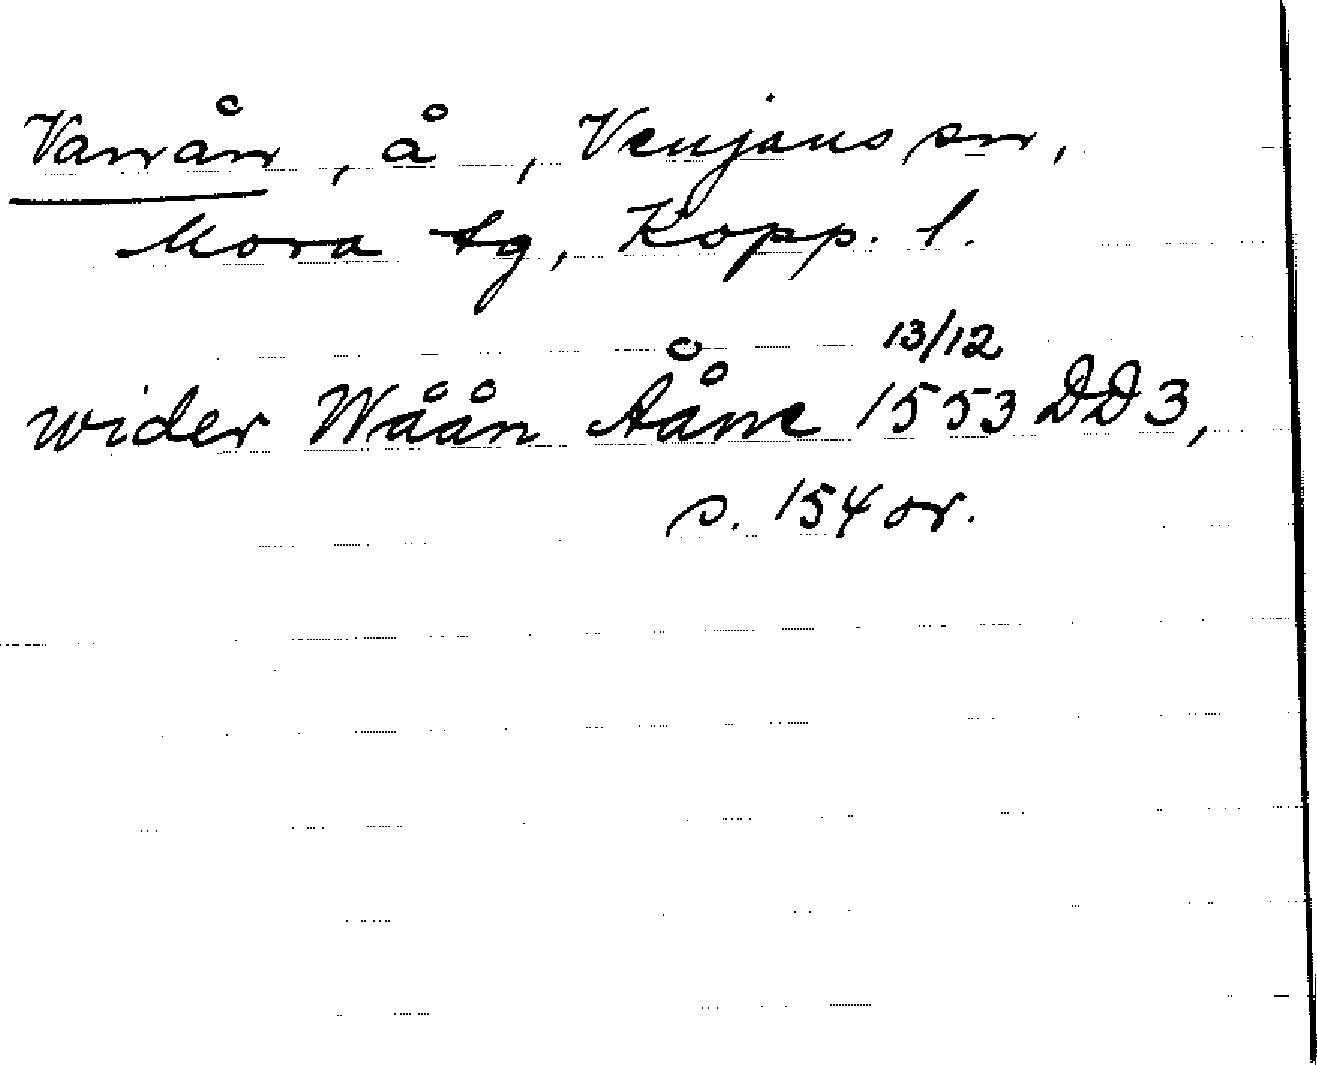 Vanån, å, Venjans sn,
Mora tg, Kopp. l.
wider Wåån Ååne 13/12 1553 DD3,
s. 154 or.